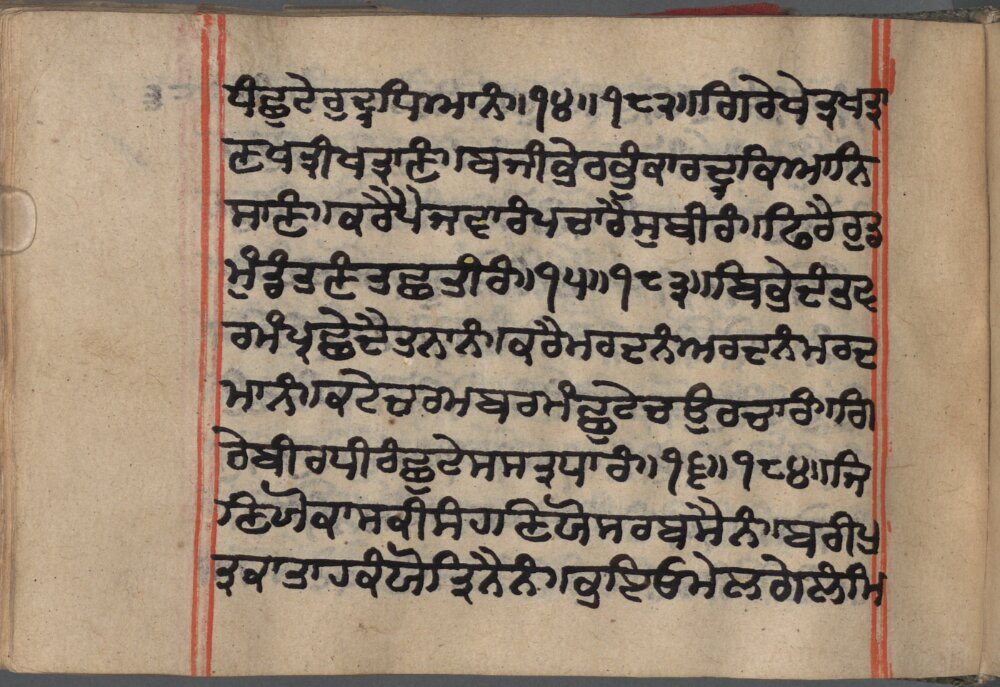 ਧੰਛੁਟੇਰੁਦ੍ਰਧਿਆਨੰ॥੧੪॥੧੮੨॥ਗਿਰੇਖੇਤ੍ਰਖਤ੍ਰਾ
ਣਖਤ੍ਰੀਖਤ੍ਰਾਣੰ॥ਬਜੀਭੇਰਭੁੰਕਾਰਦ੍ਰੁਕਿਆਨਿ
ਸਾਣੰ॥ਕਰੈਪੈਜਵਾਰੰਪਚਾਰੈਸੁਬੀਰੰ॥ਫਿਰੈਰੁਡ
ਮੁੰਡੰਤਣੰਤਛਤੀਰੰ॥੧੫॥੧੮੩॥ਬਿਭੇਦੰਤਵ
ਰਮੰਪ੍ਰਛੇਦੈਤਨਾਨੰ॥ਕਰੈਮਰਦਨੰਅਰਦਨੰਮਰਦ
ਮਾਨੰ॥ਕਟੇਚਰਮਬਰਮੰਛੁਟੇਚਉਰਚਾਰੰ॥ਗਿ
ਰੇਬੀਰਧੀਰੰਛੁਟੇਸਸਤ੍ਰਧਾਰੰ॥੧੬॥੧੮੪॥ਜਿ
ਣਿਯੋਕਾਮਕੀਸੰਹਣਿਯੋਸਰਬਸੈਨੰ॥ਬਰੀਪ੍ਰ
ਤ੍ਰਕਾਤਾਹਕੰਯੋਤ੍ਰਿਨੈਨੰ॥ਭਇਓਮੇਲਗੇਲੰਮਿ